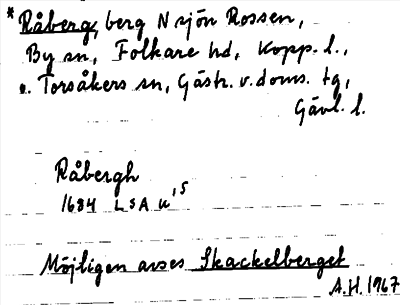 * Råberg, berg N sjön Rossen,
By sn, Folkare hd, Kopp. l.,
o. Torsåkers sn, Gästr. v. doms. tg,
Gävl. l.
Råbergh
1684 LSA
Möjligen avses Skackelberget
A.H. 1967